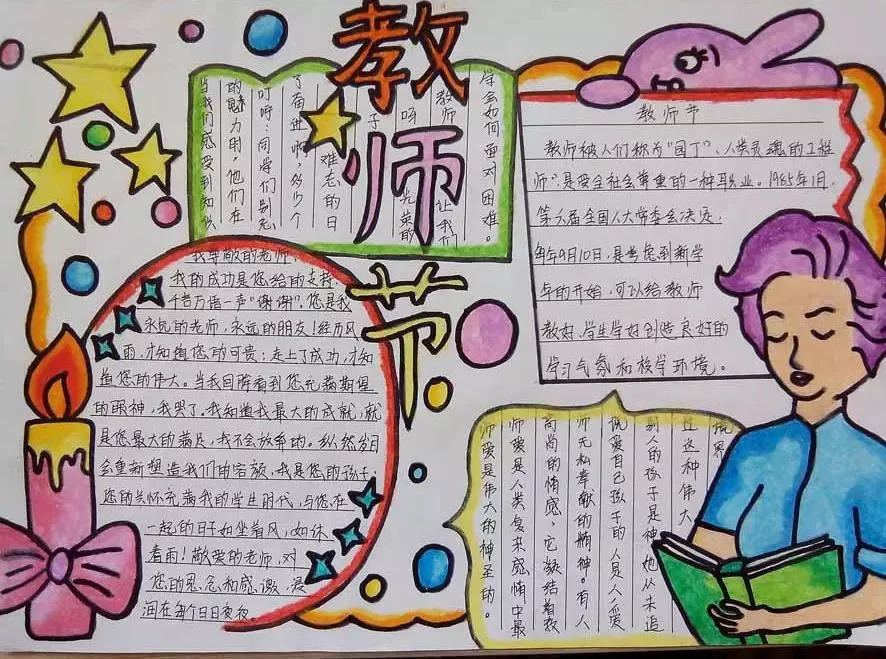 教师节
当我们感受到知识
的魅力时，他们在
叮咛：同学们别忘
了奋进啊，多少个
难忘的日
子
呀
教师
光荣的
让我们
学会如何面对困难。
教师节
教师被人们称为“园丁”、人类灵魂的工程
师”，是受全社会尊重的一种职业。1985年1月，
第六届全国人大常委会决定，
每年9月10日，是考虑到新学
年的开始，可以给教师
教好、学生学好创造良好的
学习气氛和校学环境。
我尊敬的老师，
我的成功是您给的支持，
千言万语一声“谢谢”。您是我
永远的老师，永远的朋友！经历风
雨，才知道您的可贵；走上了成功，才知
道您的伟大。当我回眸看到您充满期望
的眼神，我哭了。我知道我最大的成就，就
是您最大的满足，我不会放弃的。纵然岁月
会重新塑造我们的容颜，我是您的孩子；
您的关怀充满我的学生时代，与您在
一起的日子如坐春风，如沐
春雨！敬爱的老师，对
您的思念和感激，浸
润在每个日日夜夜。
师爱是伟大的神圣的。
师爱是人类复来感情中最
高尚的情感，它凝结着教
师无私奉献的精神。有人
说爱自己孩子的人是人爱
别人的孩子是神，她从未追
过这种伟大
境界